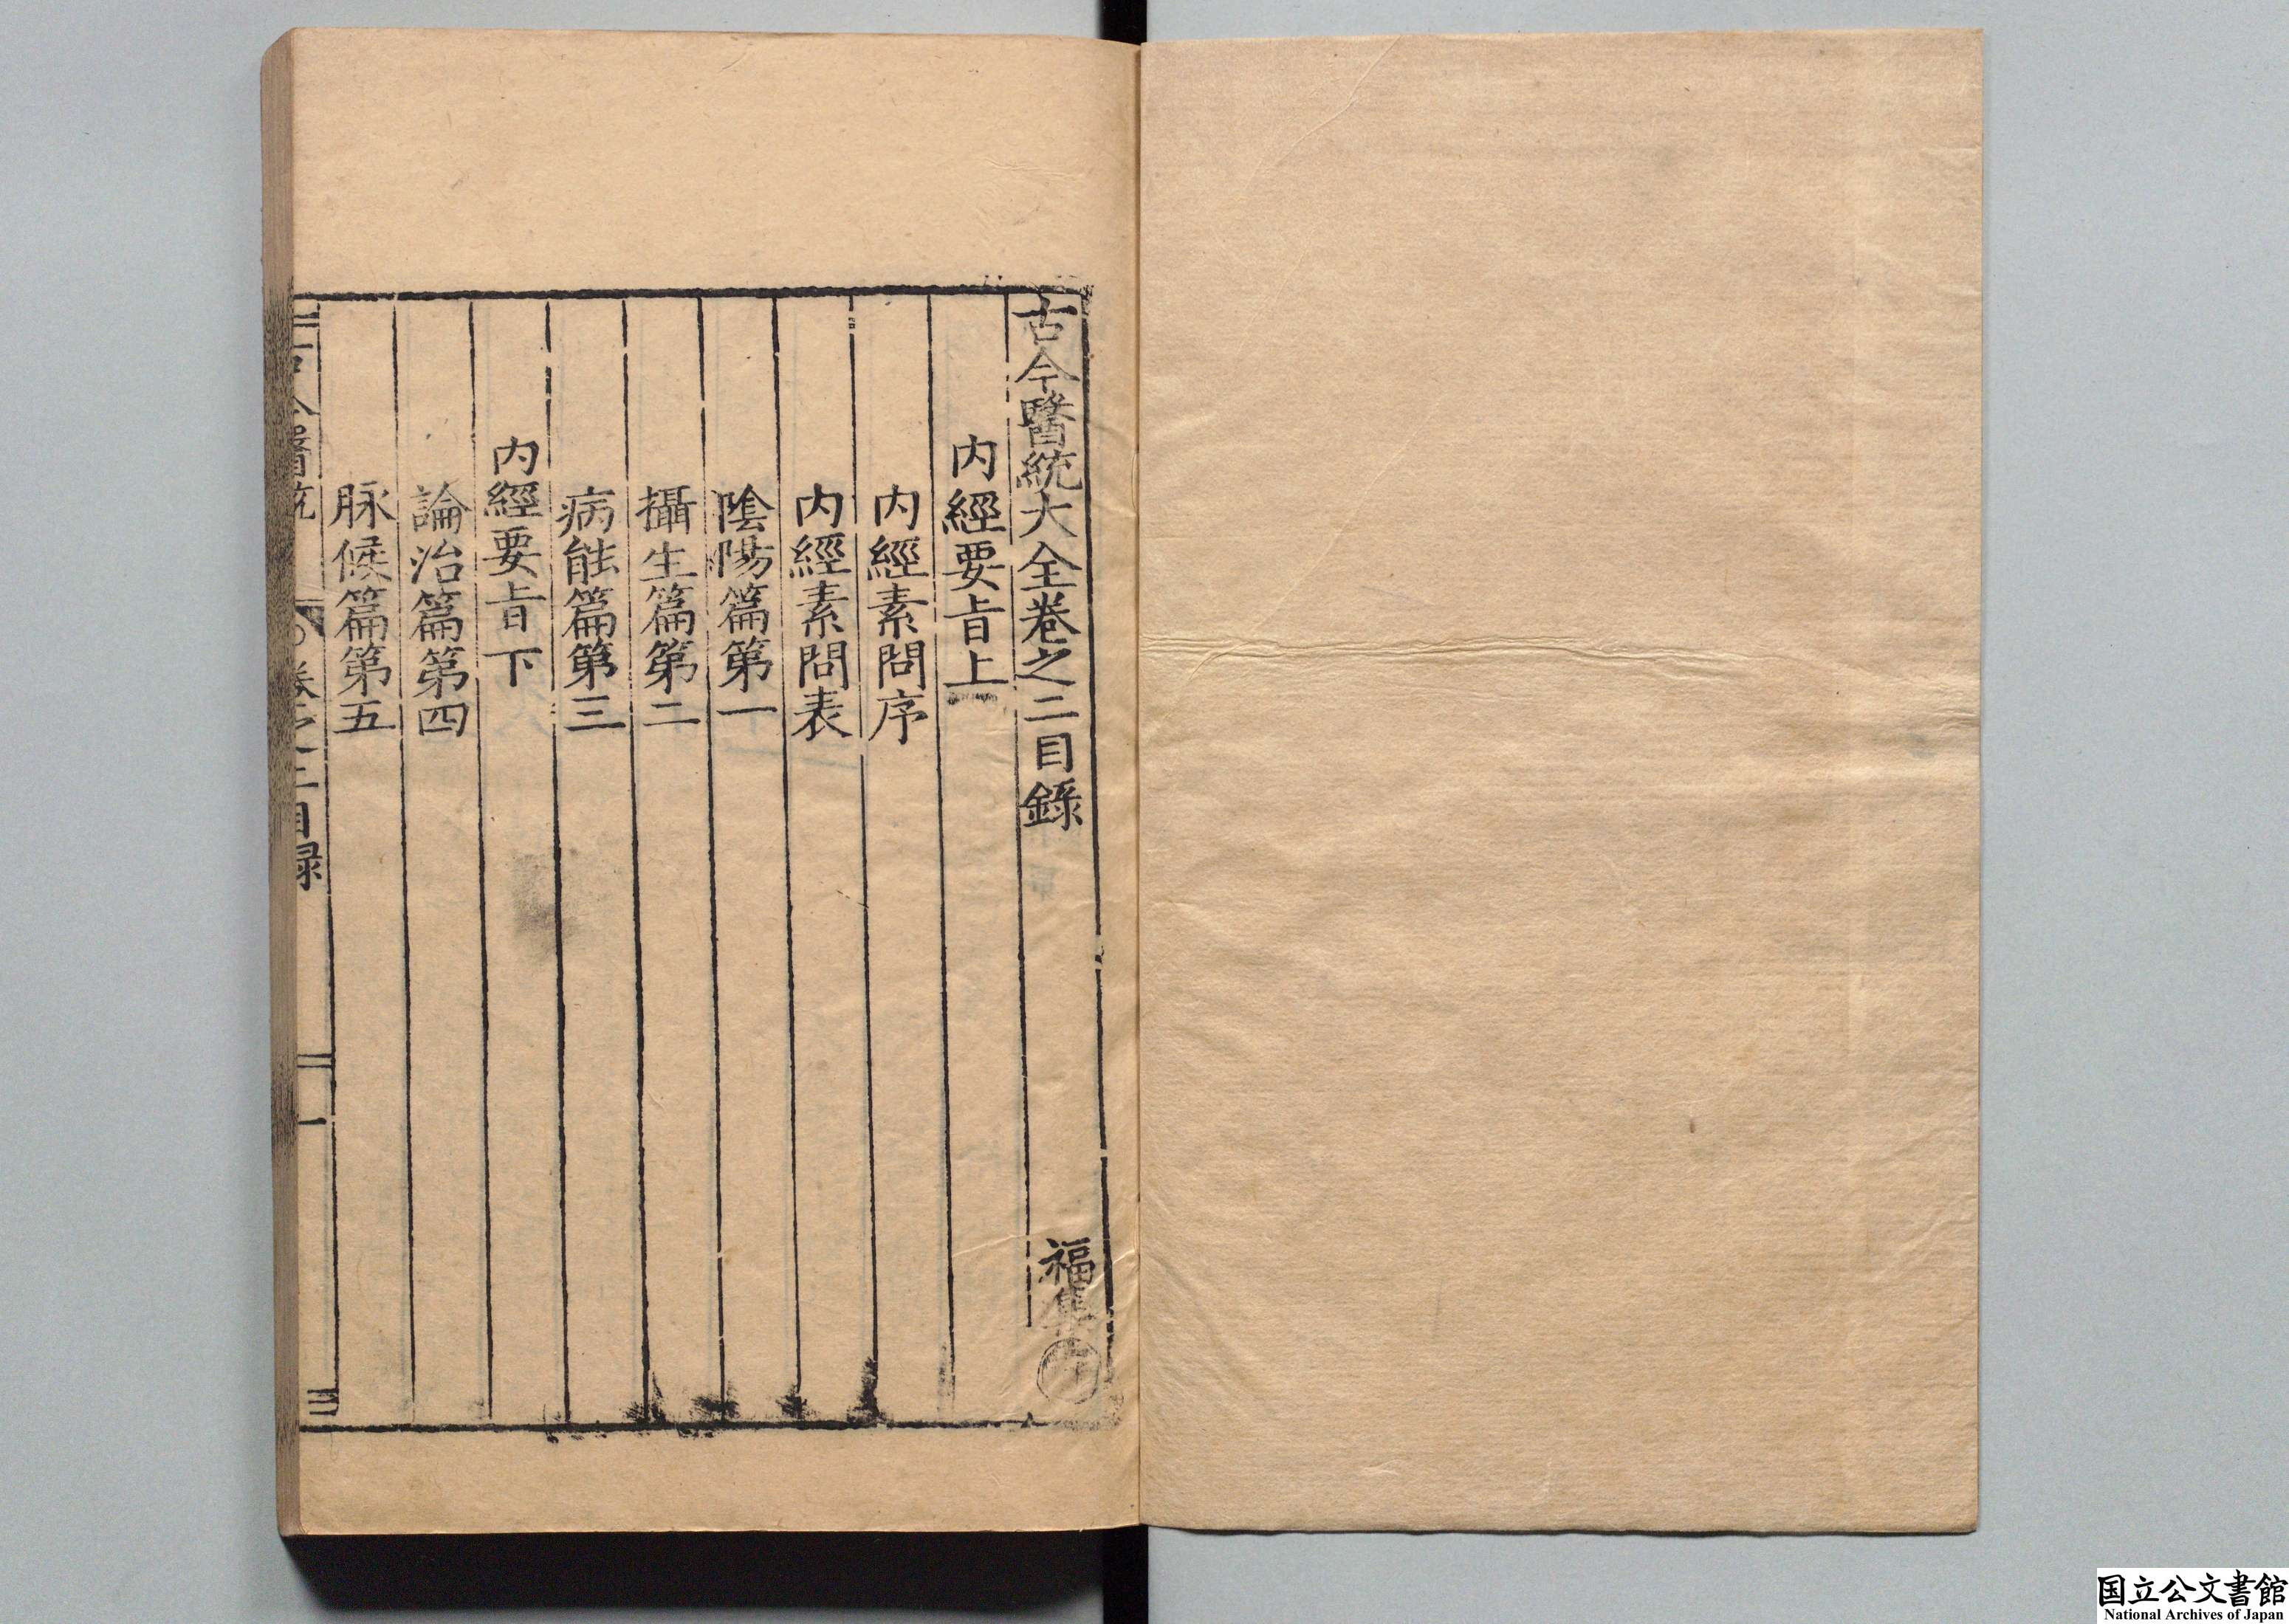 古今醫統大全卷之二目錄
福集
內經要旨上
內經素問序
內經素問表
陰陽篇第一
攝生篇第二
病能篇第三
內經要旨下
論治篇第四
脉候篇第五
古今醫統
卷之二目録
一
国立公文書館
National Archives of Japan